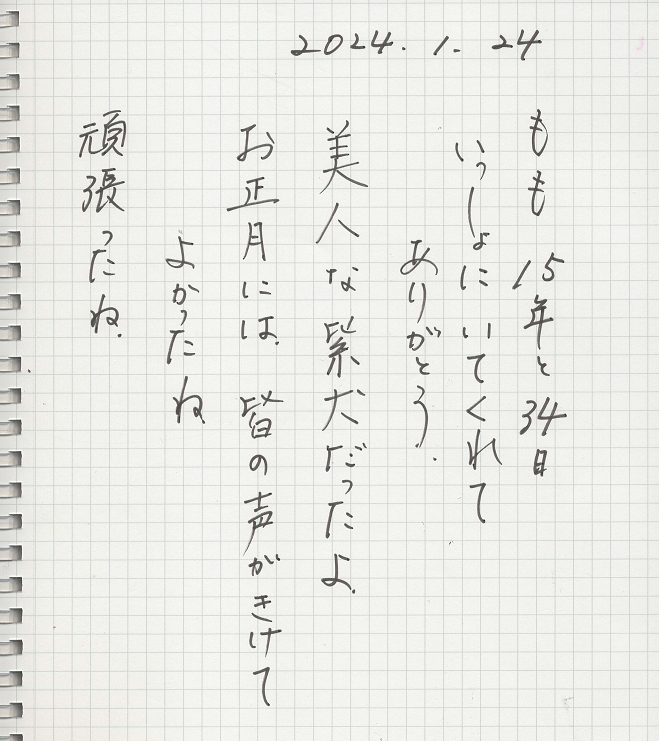 2024.1.24
もも 15年と34日
いっしょにいてくれて
ありがとう.
美人な紫犬だったよ.
お正月には.皆の声がきけて
よかったね
頑張ったね.